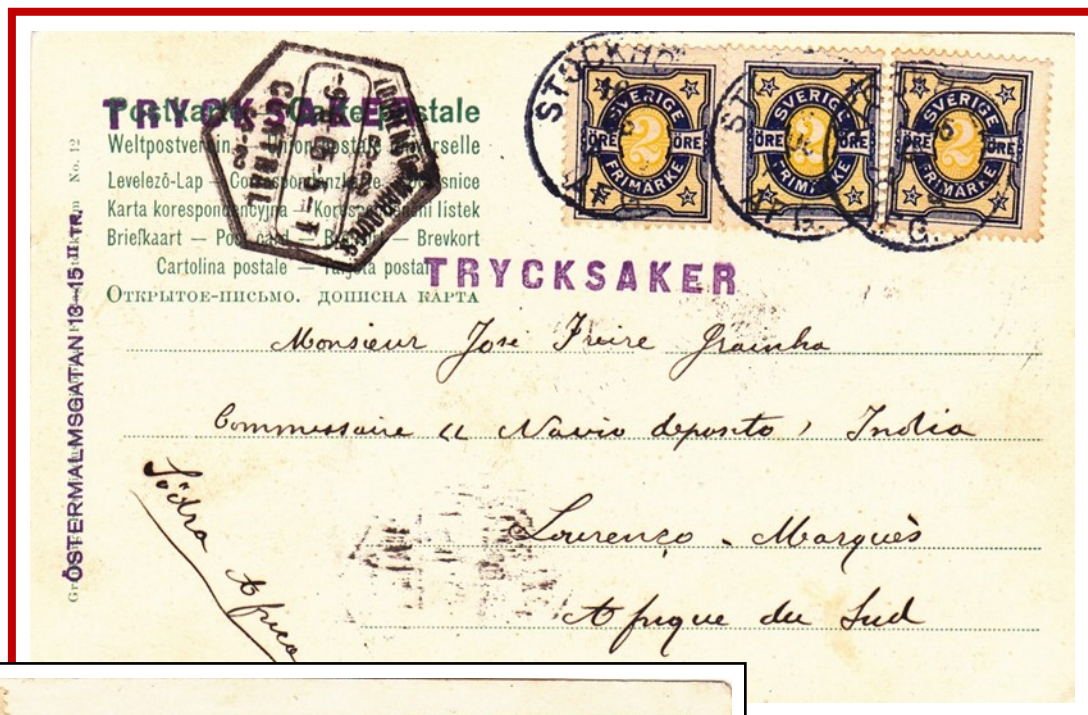 TRYCKSAKER
Postkarte — Carte postale
Weltpostverein. Union postale universelle
Levelező-Lap — Correspondenzkarte
Karta korespondencyjna — Korespondenční lístek
Briefkaart — Post card — Brevkort
Cartolina postale — Tarjeta postal
Открытое-письмо. дописна карта
TRYCKSAKER
No. 12
ÖSTERMALMSGATAN 13-15 II TR.
CENTRAL
STOCKHO
SVERIGE
2
ÖRE ÖRE
FRIMÄRKE
SVERIGE
2
ÖRE ÖRE
FRIMÄRKE
SVERIGE
2
ÖRE ÖRE
FRIMÄRKE
Monsieur José Freire Grainha
Commessaire « Navio deposito » India
Lourenço - Marquès
Afrique du Sud
Södra Africa